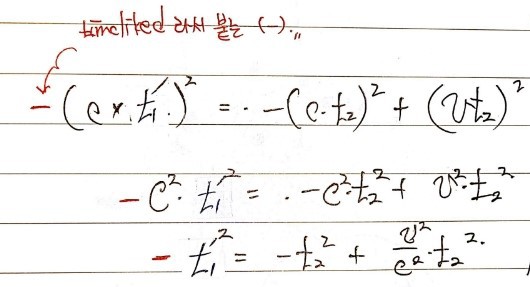 timeliked 라서 붙는 (-).,,
-(c × t₁′.)² = . -(c.t₂)² + (vt₂)²
-c². t₁′² = . -c².t₂² + v².t₂²
-t₁′² = -t₂² + v²/c².t₂².